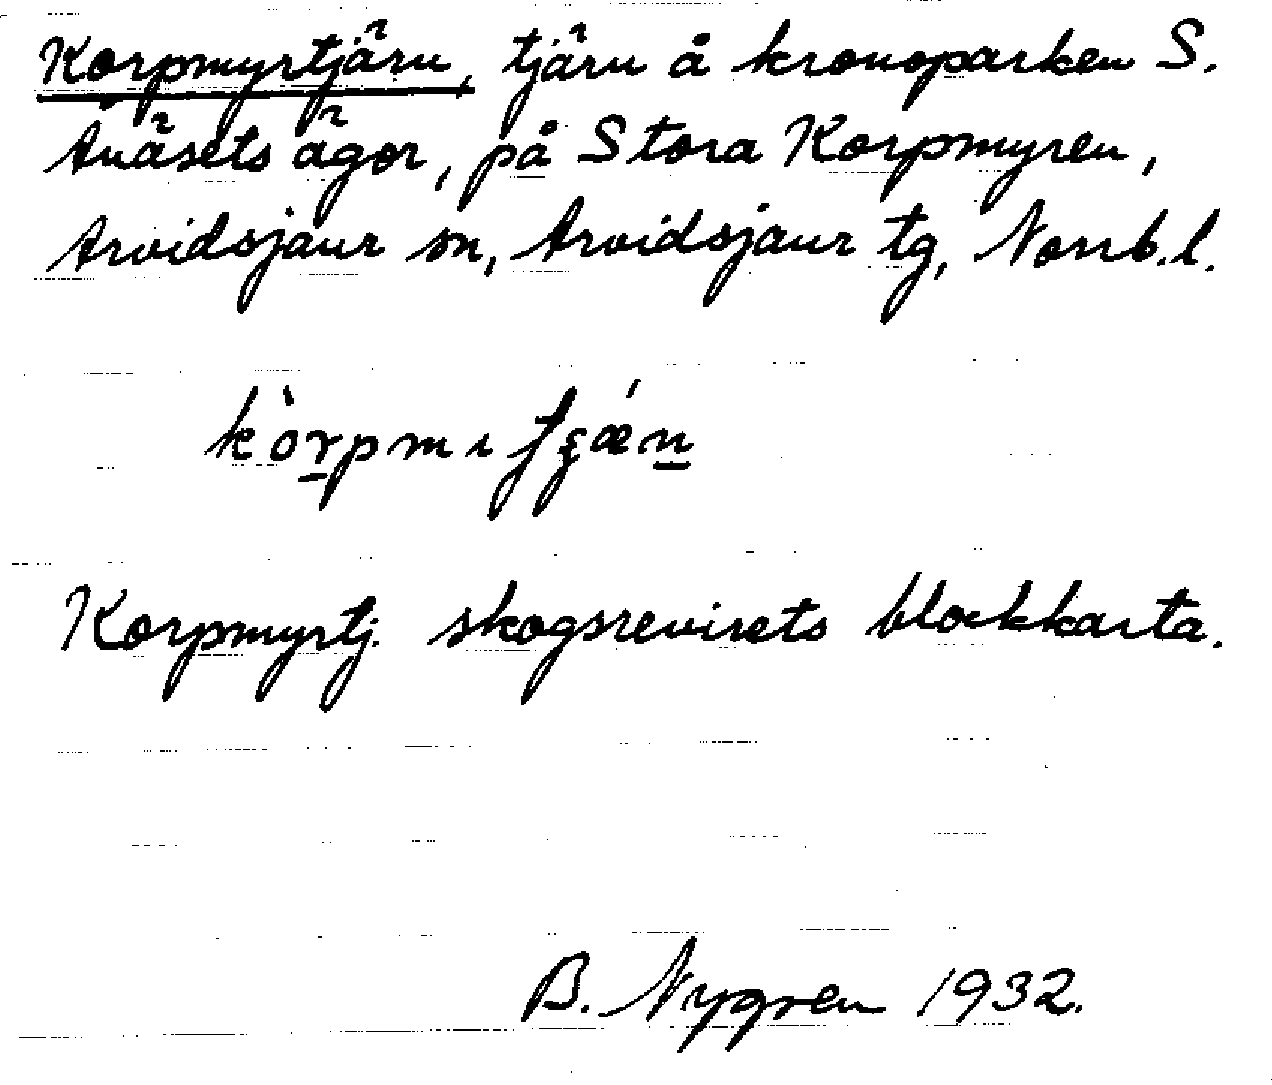 Korpmyrtjärn, tjärn å kronoparken S.
Anäsets ägor, på Stora Korpmyren,
Arvidsjaur sn, Arvidsjaur tg, Norrb.l.
Korpmyrtj. skogsrevirets blockkarta.
B. Nygren 1932.